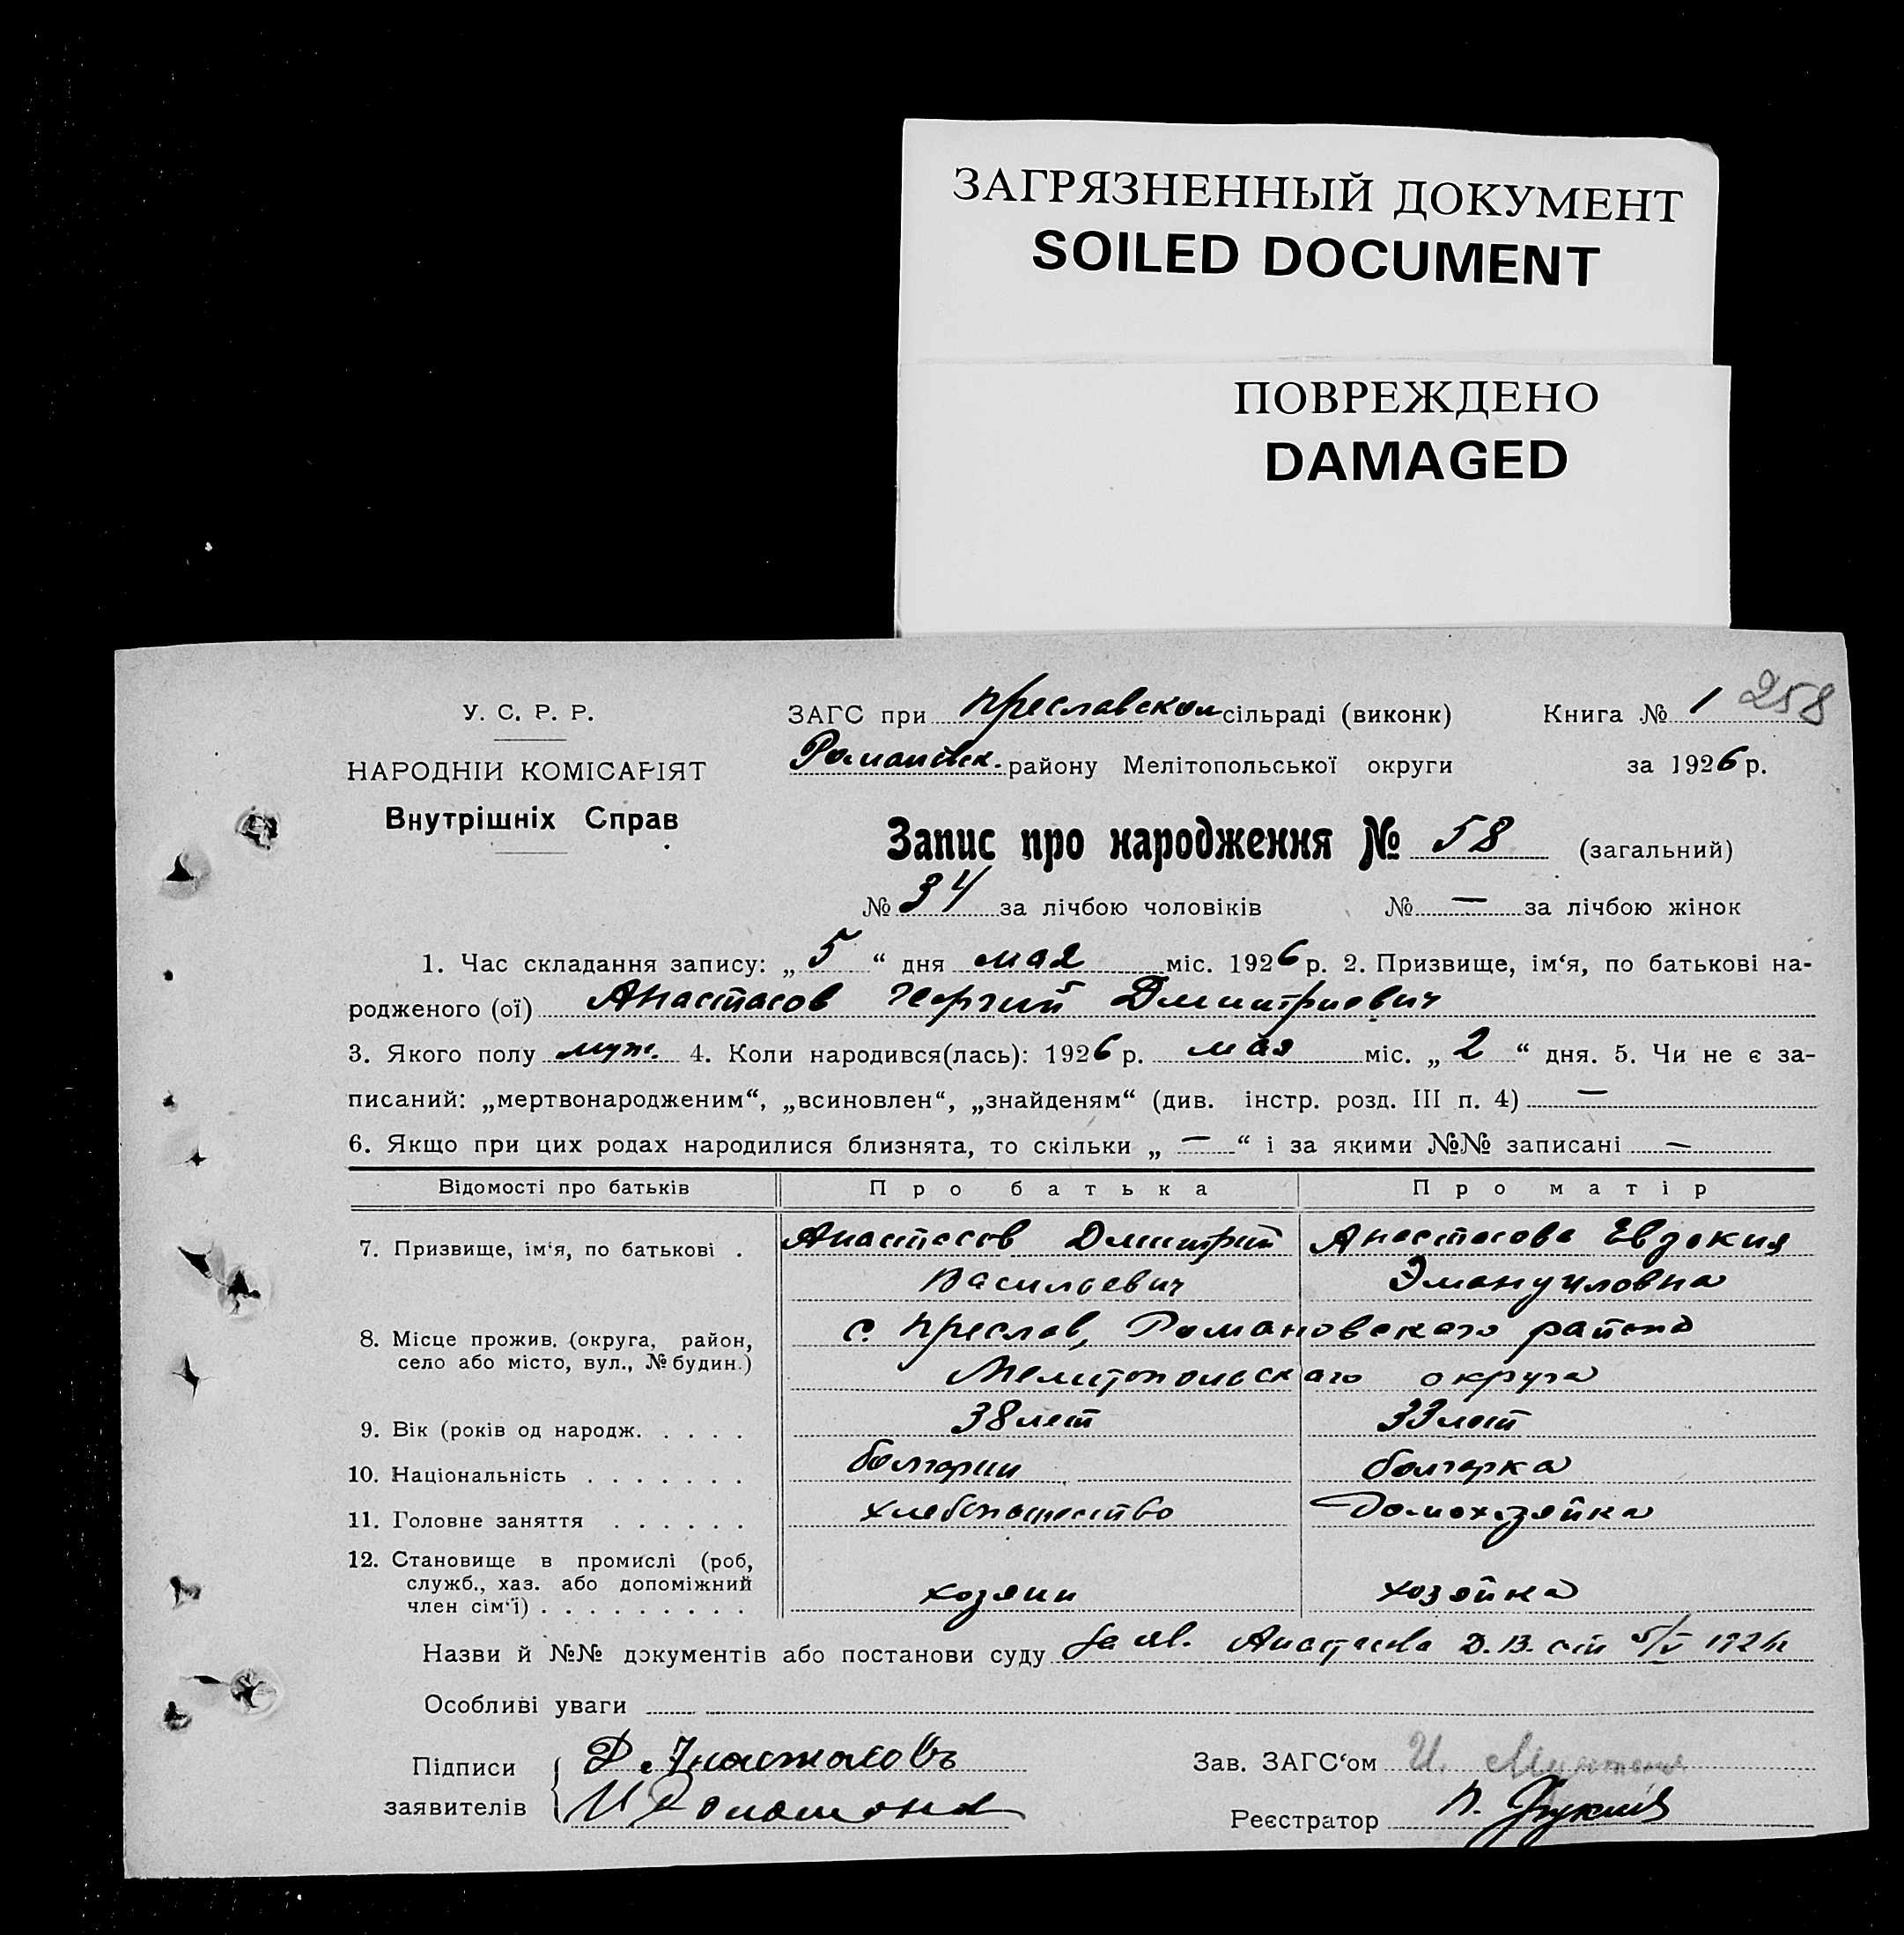 ЗАГРЯЗНЕННЫЙ ДОКУМЕНТ
SOILED DOCUMENT
ПОВРЕЖДЕНО
DAMAGED
258
У. С. Р. Р.
НАРОДНІЙ КОМІСАРІЯТ
Внутрішніх Справ
ЗАГС при Преславском сільраді (виконк) Книга № 1
Романовск. району Мелітопольської округи за 1926 р.
Запис про народження № 58 (загальний)
№ 34 за лічбою чоловіків № — за лічбою жінок
1. Час складання запису: „ 5 “ дня мая міс. 1926 р. 2. Призвище, ім‘я, по батькові на-
родженого (ої) Анастасов Георгий Дмитриевич
3. Якого полу муж. 4. Коли народився(лась): 1926 р. мая міс. „ 2 “ дня. 5. Чи не є за-
писаний: „мертвонародженим“, „всиновлен“, „знайденям“ (див. інстр. розд. III п. 4) —
6. Якщо при цих родах народилися близнята, то скільки „ — “ і за якими №№ записані —
Відомості про батьків Про батька Про матір
7. Призвище, ім‘я, по батькові . Анастасов Дмитрий Анастасова Евдокия
Васильевич Эмануиловна
8. Місце прожив. (округа, район, с. Преслав, Романовского района
село або місто, вул., № будин.)
Мелитопольского округа
9. Вік (років од народж. . . . . 38 лет 33 лет
10. Національність . . . . . . . болгарин болгарка
11. Головне заняття . . . . . . хлебопашество Домохозяйка
12. Становище в промислі (роб,
служб., хаз. або допоміжний
член сім‘ї) . . . . . . . . . хозяин хозяйка
Назви й №№ документів або постанови суду Заяв. Анастасова Д. В. от 5/V 1926
Особливі уваги
Підписи Д. Анастасовъ Зав. ЗАГС‘ом И.
заявителів Реєстратор